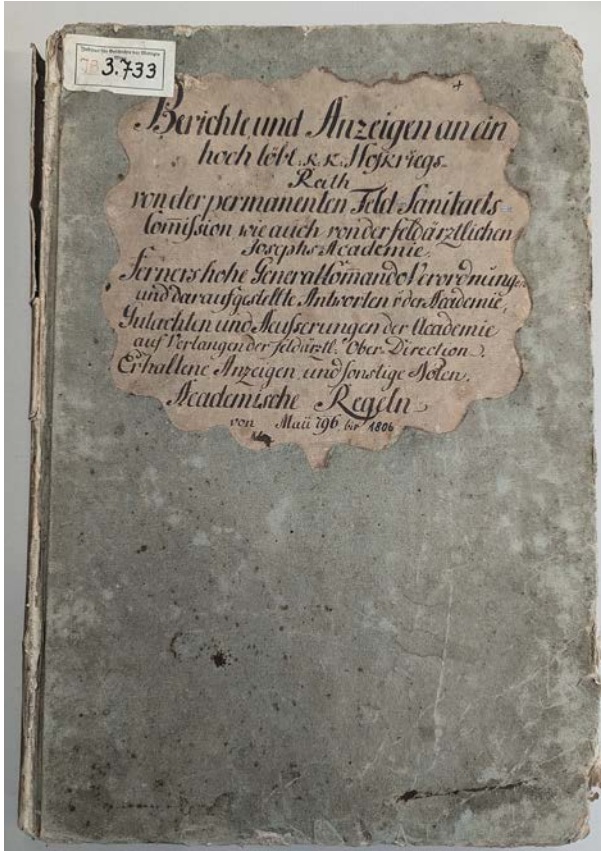 Institut für Geschichte der Medizin
JB 3.733
Berichte und Anzeigen an ein
hoch löbl. K. K. Hofkriegs-
Rath
von der permanenten Feld-Sanitaets-
Com̅ission wie auch von der feldärztlichen
Josephs-Academie.
ferners hohe General Com̅ando Verordnungen
und darauf gestellte Antworten v der Academie,
Gutachten und Aeusserungen der Academie
auf Verlangen der feldärztl. Ober-Direction.
Erhaltene Anzeigen und sonstige Noten.
Academische Regeln
von Maii 796 bis 1806